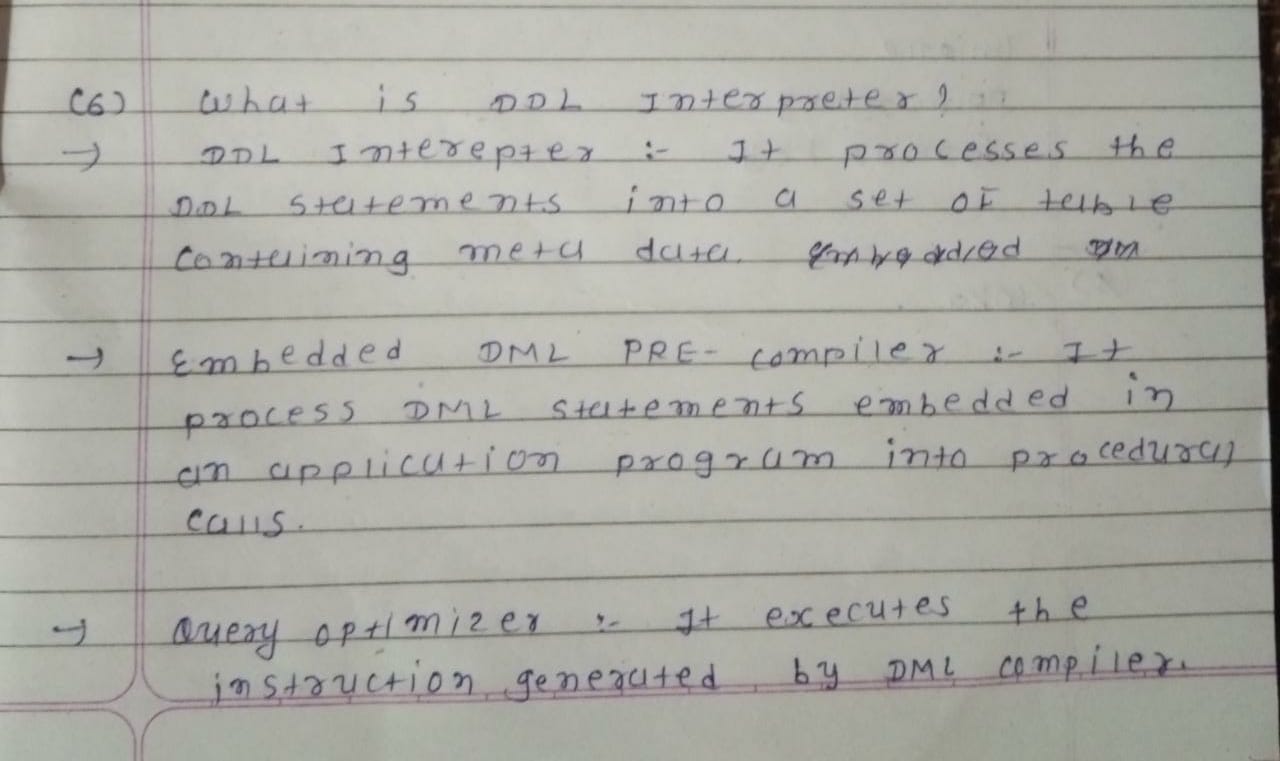 (6) What is DDL Interpreter?
→ DDL Interepter :- It processes the
DDL statements into a set of table
containing meta data.
→ Embedded DML PRE- compiler :- It
process DML statements embedded in
an application program into procedural
calls.
→ Query optimizer :- It executes the
instruction generated by DML compiler.